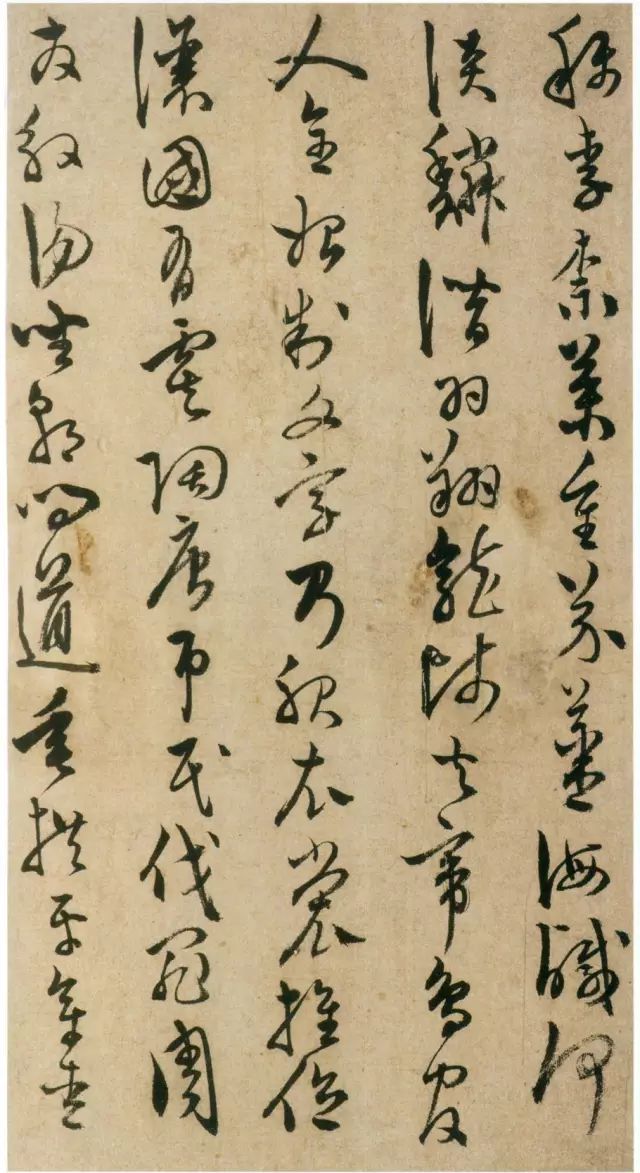 珎李柰菜重芥薑海鹹河
淡鱗潛羽翔龍師火帝鳥官
人皇始制文字乃服衣裳推位
讓國有虞陶唐吊民伐罪周
發殷湯坐朝問道垂拱平章愛